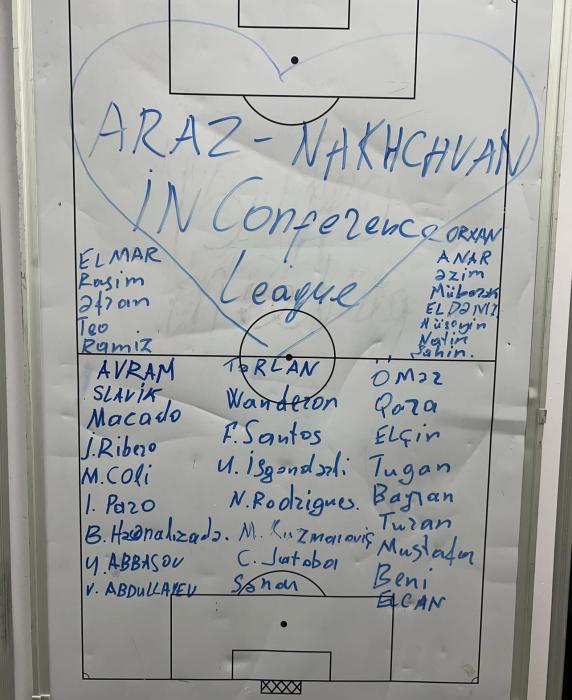 ARAZ - NAKHCHVAN
IN Conference
League
ELMAR
Rasim
Əfran
Teo
Ramiz
ORXAN
ANAR
Əzim
ELDƏNIZ
Hüseyin
Natin
Şahin.
AVRAM
SLAVİK
Macado
J.Ribero
M.COLi
I. Pazo
Ü. ABBASOV
V. ABDULLAYEV
TƏRLAN
Wanderson
F. Santos
U. İsgəndərli
N. Rodrigues.
M. Kuzmanoviç
C. Jatobə
Sənan
Oməz
Qara
ELÇİN
Tugan
Bayran
Turan
Mustafa
Beni
ELCAN